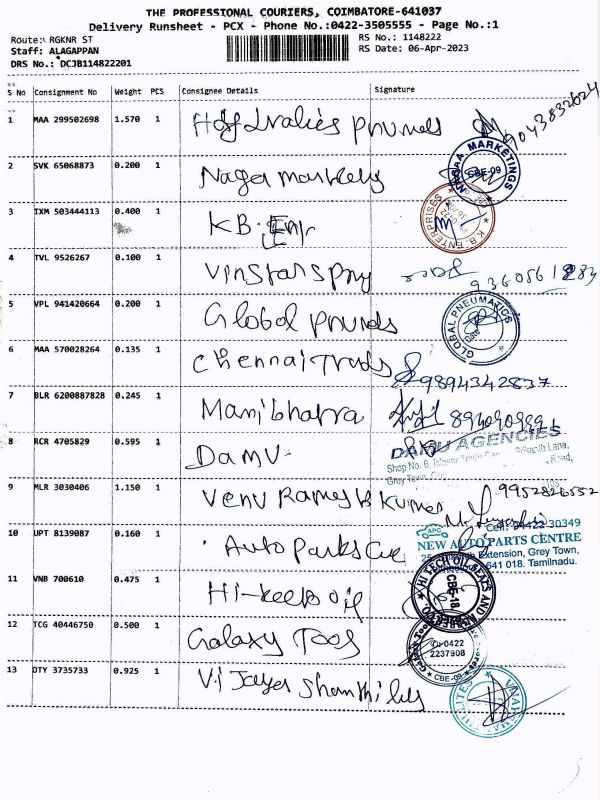 THE PROFESSIONAL COURIERS, COIMBATORE-641037
Delivery Runsheet - PCX - Phone No.:0422-3505555 - Page No.:1
Route: RGKNR ST RS No.: 1148222
Staff: ALAGAPPAN RS Date: 06-Apr-2023
DRS No.: DCJB114822201
S No Consignment No Weight PCS Consignee Details Signature
1 MAA 299502698 1.570 1 9043832624
2 SVK 65068873 0.200 1 Naga MARKETINGS CBE-09
3 IXM 503444113 0.400 1 K.B. Ent K.B. ENTERPRISES
4 TVL 9526267 0.100 1
5 VPL 941420664 0.200 1 Global GLOBAL PNEUMATICS
6 MAA 570028264 0.135 1 Chennai Trads 9894342837
7 BLR 6200887828 0.245 1
8 RCR 4705829 0.595 1 DAMU DAMU AGENCIES
Shop No. 6, Lane,
Road,
Grey Town,
9 MLR 3030406 1.150 1 Venu Ramesh Kumar 9952826552
Cell: 30349
10 UPT 8139087 0.160 1 Auto Parks APC NEW AUTO PARTS CENTRE
Extension, Grey Town,
641 018. Tamilnadu.
11 VNB 700610 0.475 1 oil HI TECH OIL SEALS AND CBE-18
12 TCG 40446750 0.500 1 Galaxy Tools 0422 2237908 CBE-09
13 DTY 3735733 0.925 1 Vijaya